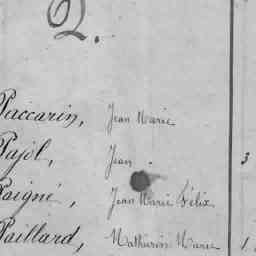 Paccarin, Jean Marie
Pajol, Jean . 3
Poigné, Jean Marie Félix
Paillard, Mathurin Marie 1